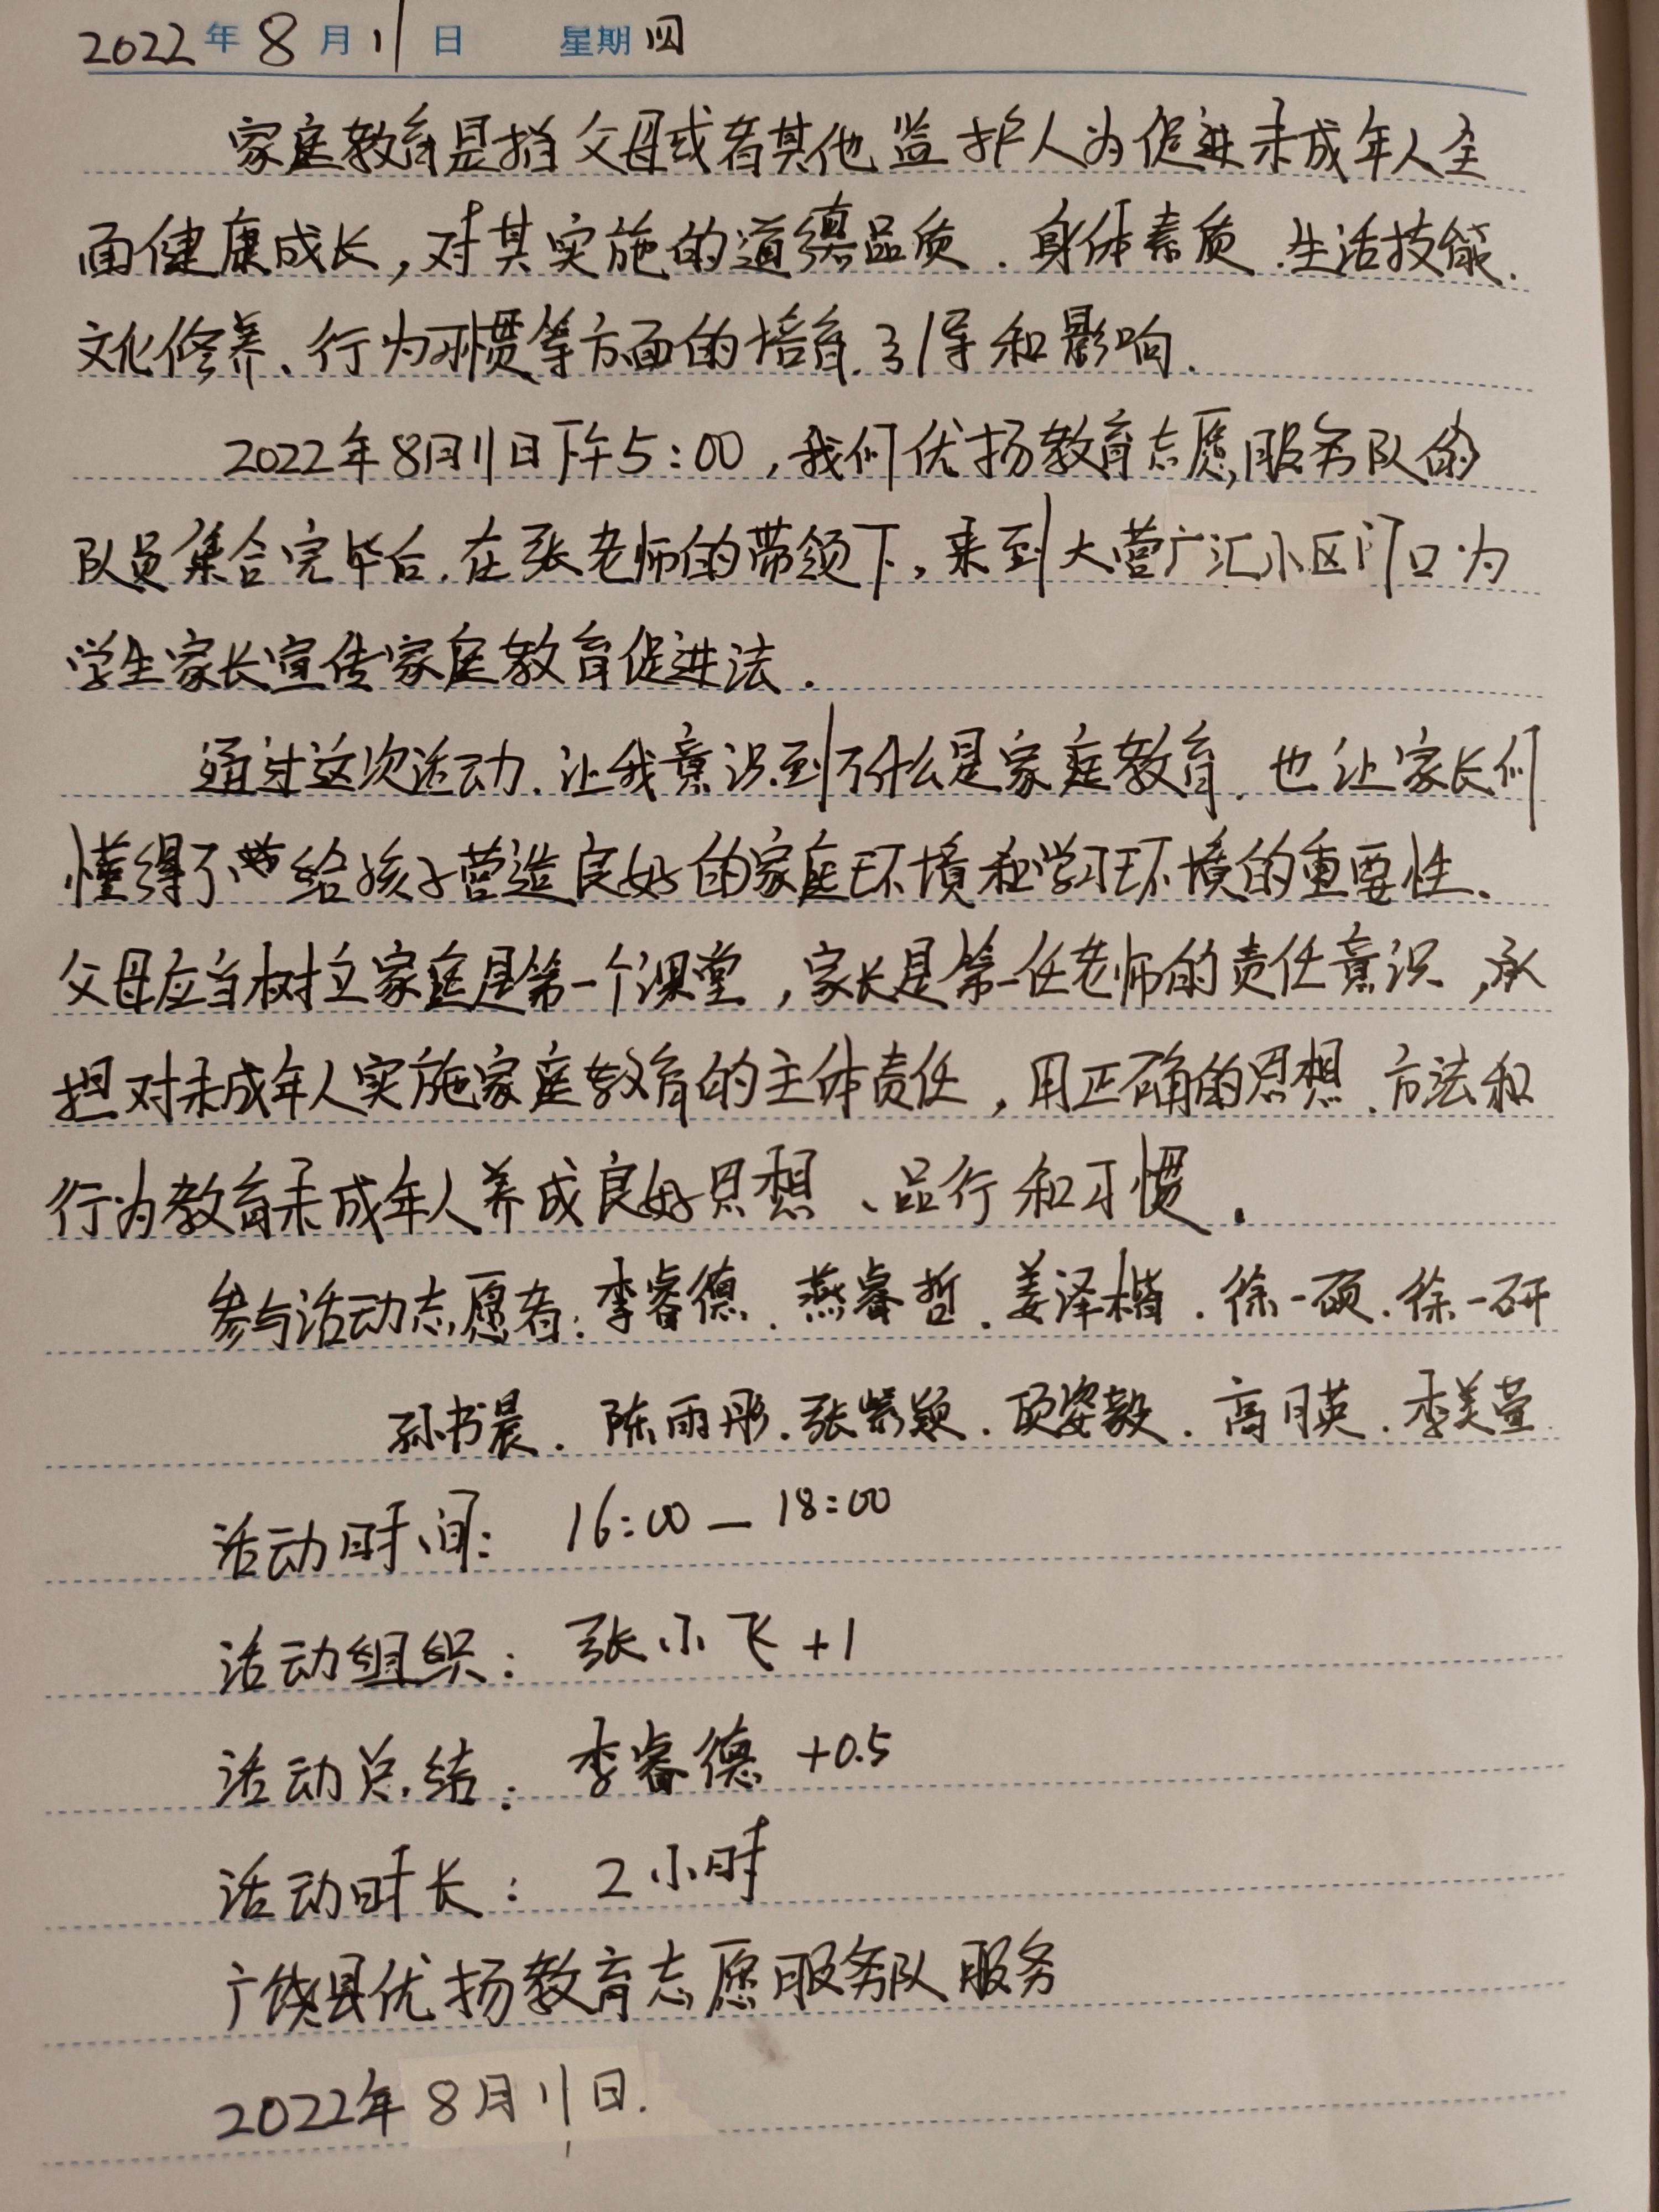 2022年8月11日 星期四
家庭教育是指父母或者其他监护人为促进未成年人全
面健康成长,对其实施的道德品质、身体素质、生活技能、
文化修养、行为习惯等方面的培育、引导和影响.
2022年8月11日下午5:00,我们优扬教育志愿服务队的
队员集合完毕后,在张老师的带领下,来到大营广汇小区门口为
学生家长宣传家庭教育促进法.
通过这次活动,让我意识到了什么是家庭教育,也让家长们
懂得了给孩子营造良好的家庭环境和学习环境的重要性、
父母应当树立家庭是第一个课堂,家长是第一任老师的责任意识,承
担对未成年人实施家庭教育的主体责任,用正确的思想、方法和
行为教育未成年人养成良好思想、品行和习惯.
参与活动志愿者:李睿德、燕睿哲、姜泽楷、徐一硕、徐一研
孙书晨、陈雨彤、张紫颖、项姿毅、高月英、李美萱
活动时间: 16:00—18:00
活动组织: 张小飞+1
活动总结: 李睿德+0.5
活动时长: 2小时
广饶县优扬教育志愿服务队服务
2022年8月11日.